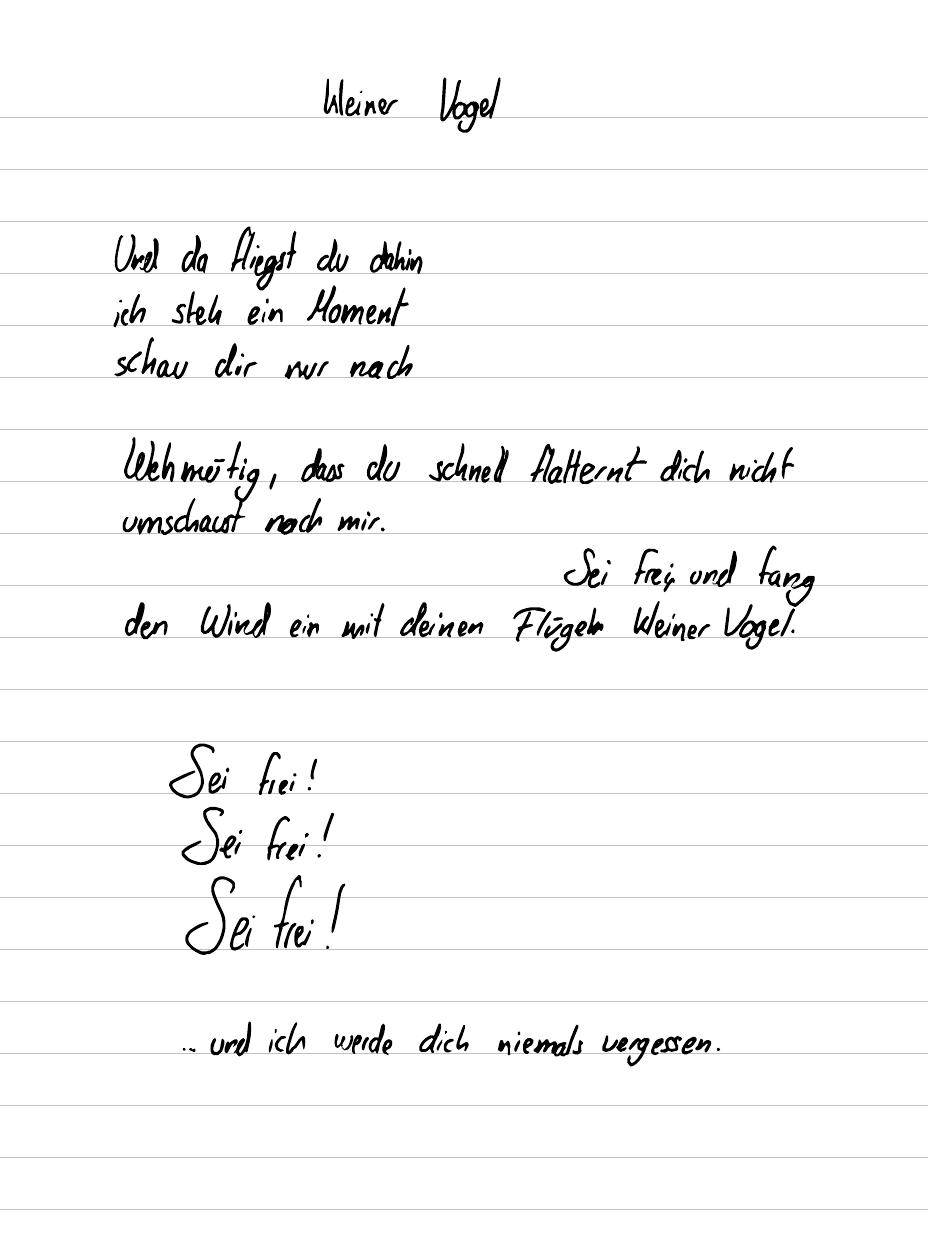 Kleiner Vogel
Und da fliegst du dahin
ich steh ein Moment
schau dir nur nach
Wehmütig, dass du schnell flatternt dich nicht
umschaust nach mir.
Sei frei, und fang
den Wind ein mit deinen Flügeln kleiner Vogel.
Sei frei!
Sei frei!
Sei frei!
... und ich werde dich niemals vergessen.